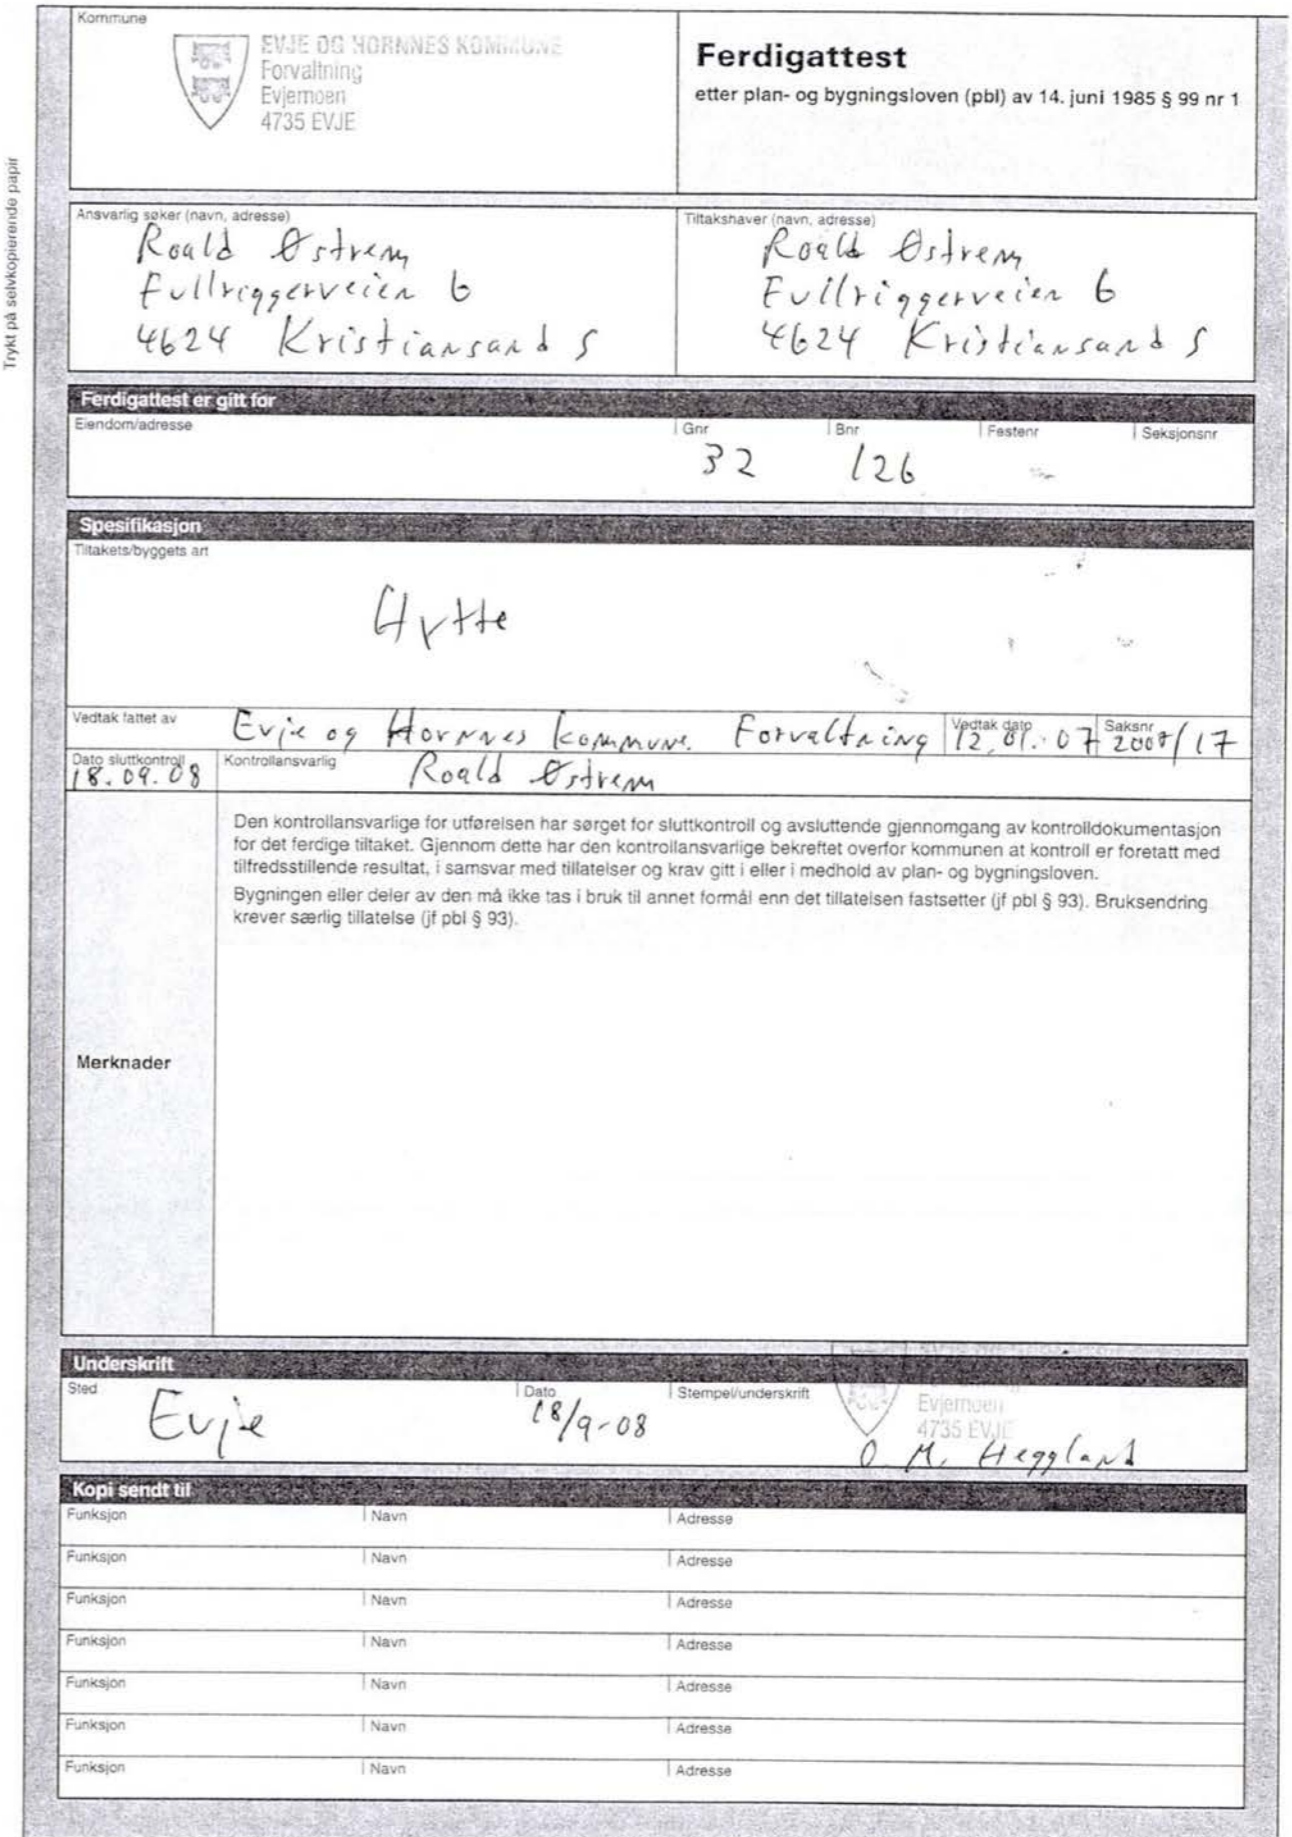 Kommune
EVJE OG HORNNES KOMMUNE
Forvaltning
Evjemoen
4735 EVJE
Ferdigattest
etter plan- og bygningsloven (pbl) av 14. juni 1985 § 99 nr 1
Trykt på selvkopierende papir
Ansvarlig søker (navn, adresse)
Roald Østrem
Fullriggerveien 6
4624 Kristiansand S
Tiltakshaver (navn, adresse)
Roald Østrem
Fullriggerveien 6
4624 Kristiansand S
Ferdigattest er gitt for
Eiendom/adresse
Gnr 32
Bnr 126
Festenr
Seksjonsnr
Spesifikasjon
Tiltakets/byggets art
Hytte
Vedtak fattet av Evje og Hornnes kommune. Forvaltning
Vedtak dato 12.01.07
Saksnr 2007/17
Dato sluttkontroll 18.09.08
Kontrollansvarlig Roald Østrem
Merknader
Den kontrollansvarlige for utførelsen har sørget for sluttkontroll og avsluttende gjennomgang av kontrolldokumentasjon
for det ferdige tiltaket. Gjennom dette har den kontrollansvarlige bekreftet overfor kommunen at kontroll er foretatt med
tilfredsstillende resultat, i samsvar med tillatelser og krav gitt i eller i medhold av plan- og bygningsloven.
Bygningen eller deler av den må ikke tas i bruk til annet formål enn det tillatelsen fastsetter (jf pbl § 93). Bruksendring
krever særlig tillatelse (jf pbl § 93).
Underskrift
Sted Evje
Dato 18/9-08
Stempel/underskrift
Evjemoen
4735 EVJE
O. M. Heggland
Kopi sendt til
Funksjon Navn Adresse
Funksjon Navn Adresse
Funksjon Navn Adresse
Funksjon Navn Adresse
Funksjon Navn Adresse
Funksjon Navn Adresse
Funksjon Navn Adresse